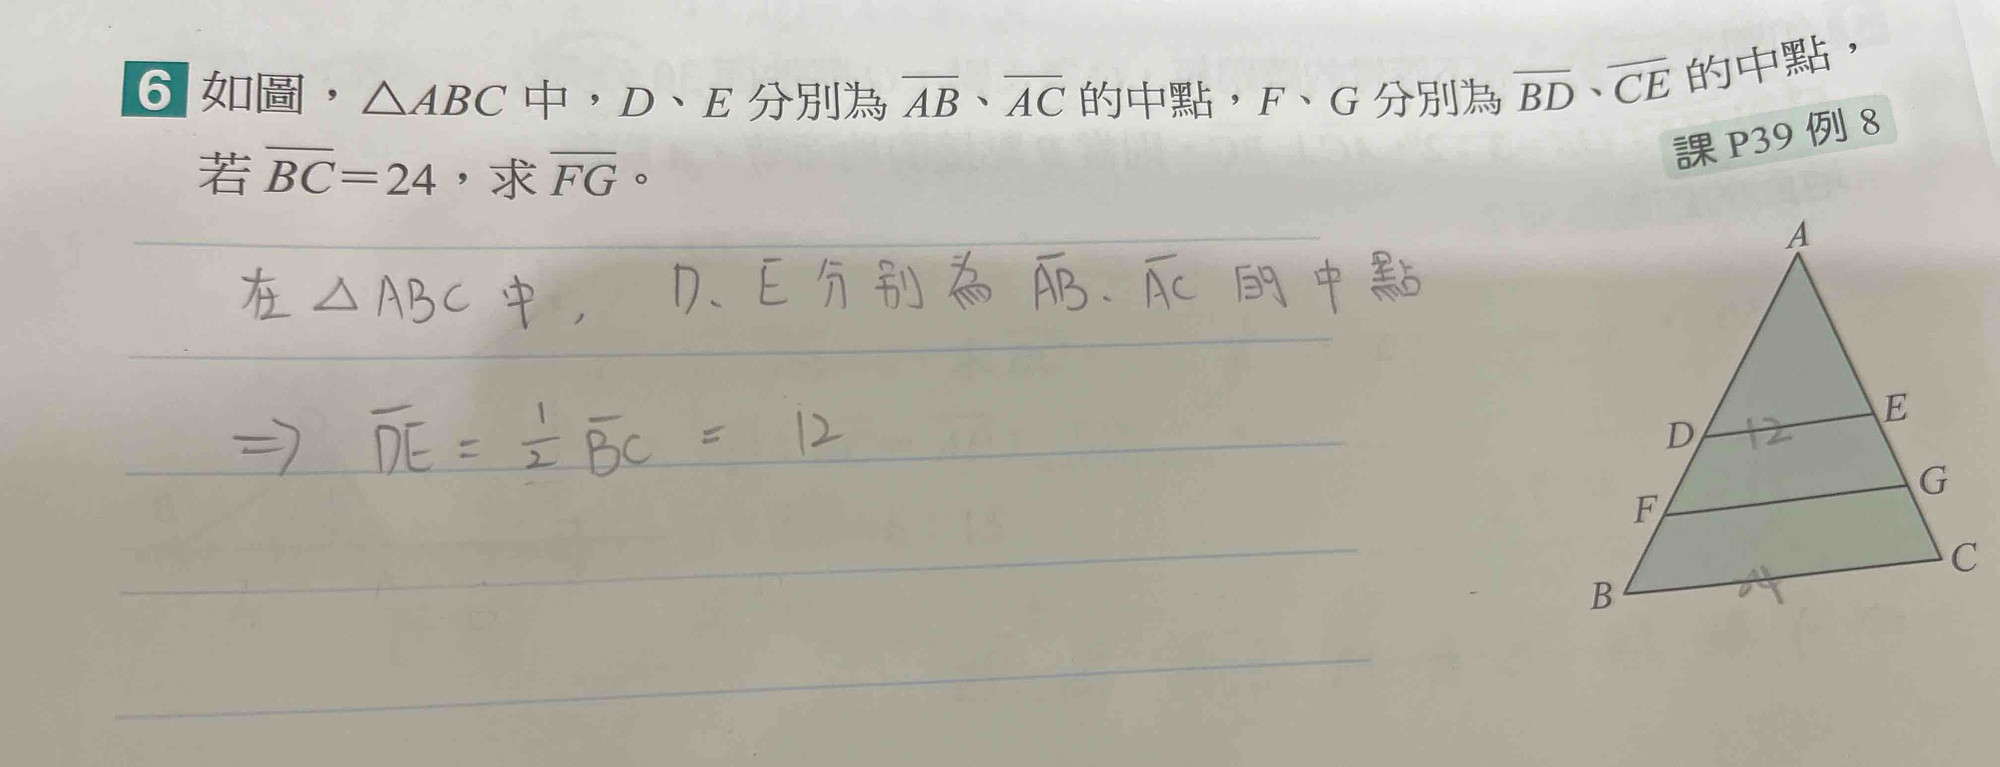 6 如圖，△ABC 中，D、E 分別為 AB、AC 的中點，F、G 分別為 BD、CE 的中點，
若 BC＝24，求 FG。
課 P39 例 8
在 △ ABC 中， D、E 分別為 AB、AC 的中點
⇒ DE = 1/2 BC = 12
A
D 12 E
F G
B 24 C